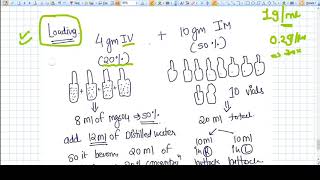 Loading 4 gm IV + 10 gm IM
(20%) (50%)
1g/ml
0.2g/ml
10 vials
8 ml of mgso4 → 50%
20 ml total
add 12ml of Distilled water
10ml 10 ml
in R in L
So it becomes 20 ml of
buttock buttock
20%